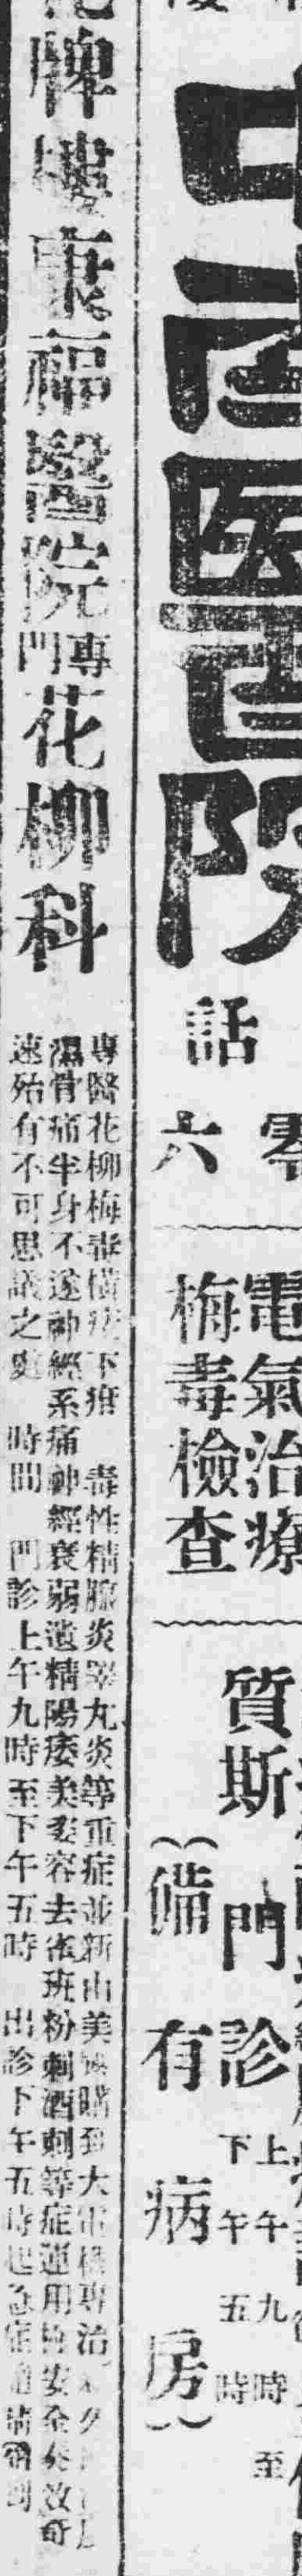 中西醫院
話
六
零
電氣治療
梅毒檢查
質斯
門診
上午九時至
下午五時
(備有病房)
牌樓康福醫院專門花柳科
專醫花柳梅毒橫痃下疳 毒性精腺炎睪丸炎等重症並新由美 購到大電機專治
濕骨痛半身不遂神經系痛神經衰弱遺精陽痿美姿容去雀班粉刺酒刺等症運用 安全奏效奇
速殆有不可思議之 時間 門診上午九時至下午五時 出診下午五時起急症